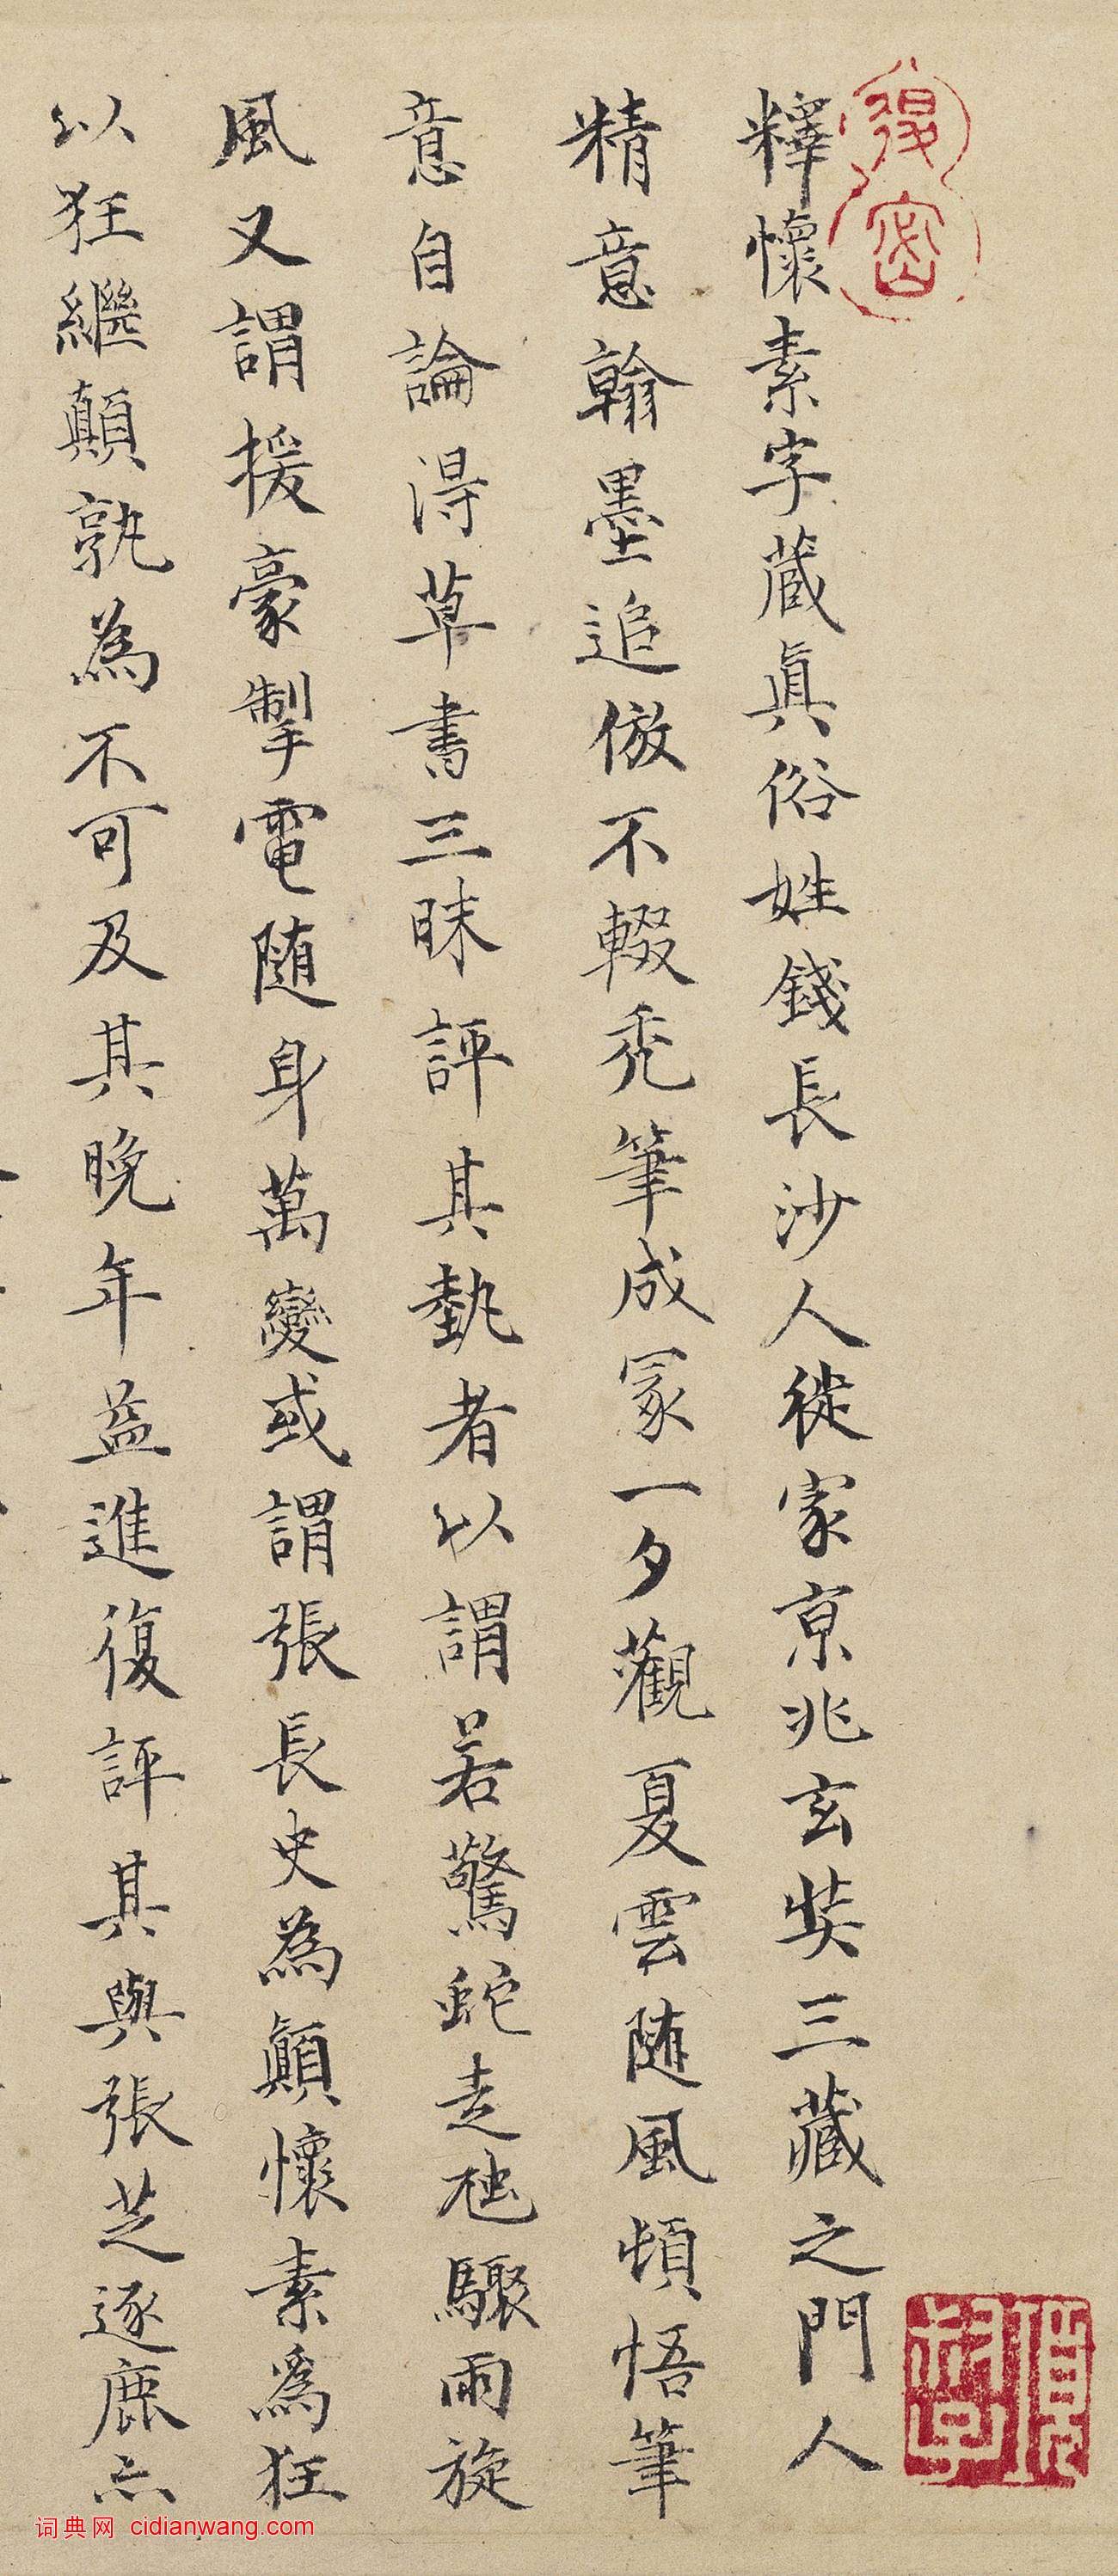 釋懷素字藏真俗姓錢長沙人徙家京兆玄奘三藏之門人
精意翰墨追倣不輟禿筆成冢一夕觀夏雲隨風頓悟筆
意自論得草書三昧評其埶者以謂若驚蛇走虺驟雨旋
風又謂援豪掣電隨身萬變或謂張長史為顛懷素為狂
以狂繼顛孰為不可及其晚年益進復評其與張芝逐鹿亦
词典网 cidianwang.com